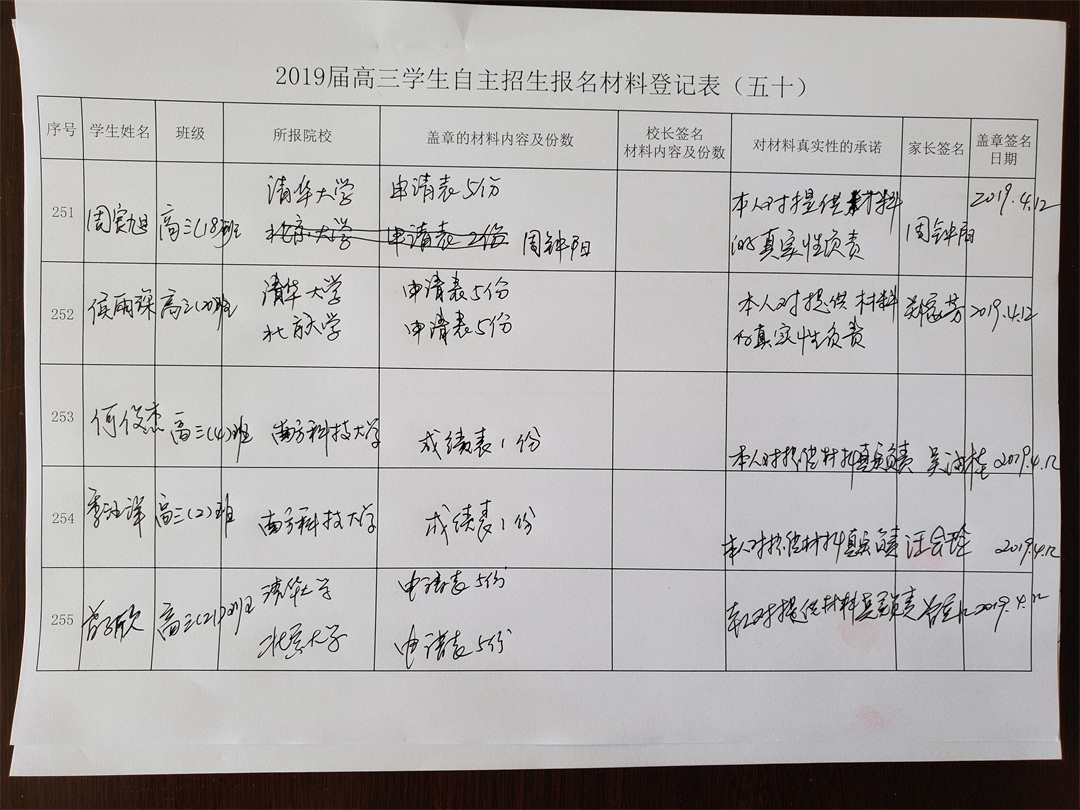 2019届高三学生自主招生报名材料登记表（五十）
序号 学生姓名 班级 所报院校 盖章的材料内容及份数 校长签名 材料内容及份数 对材料真实性的承诺 家长签名 盖章签名日期
251 周寅旭 高三(18)班 清华大学 申请表5份 本人对提供材料 2019.4.12
北京大学 申请表2份 周钟阳 的真实性负责 周钟阳
252 侯雨琛 高三(20)班 清华大学 申请表5份 本人对提供材料 郑家芳 2019.4.12
北京大学 申请表5份 的真实性负责
253 何俊杰 高三(4)班 南方科技大学 成绩表1份 本人对提供材料真实负责 2019.4.12
254 高三(2)班 南方科技大学 成绩表1份 本人对提供材料真实负责 汪会玲 2019.4.12
255 高三(21)班 清华大学 申请表5份 本人对提供材料真实负责 2019.4.12
北京大学 申请表5份